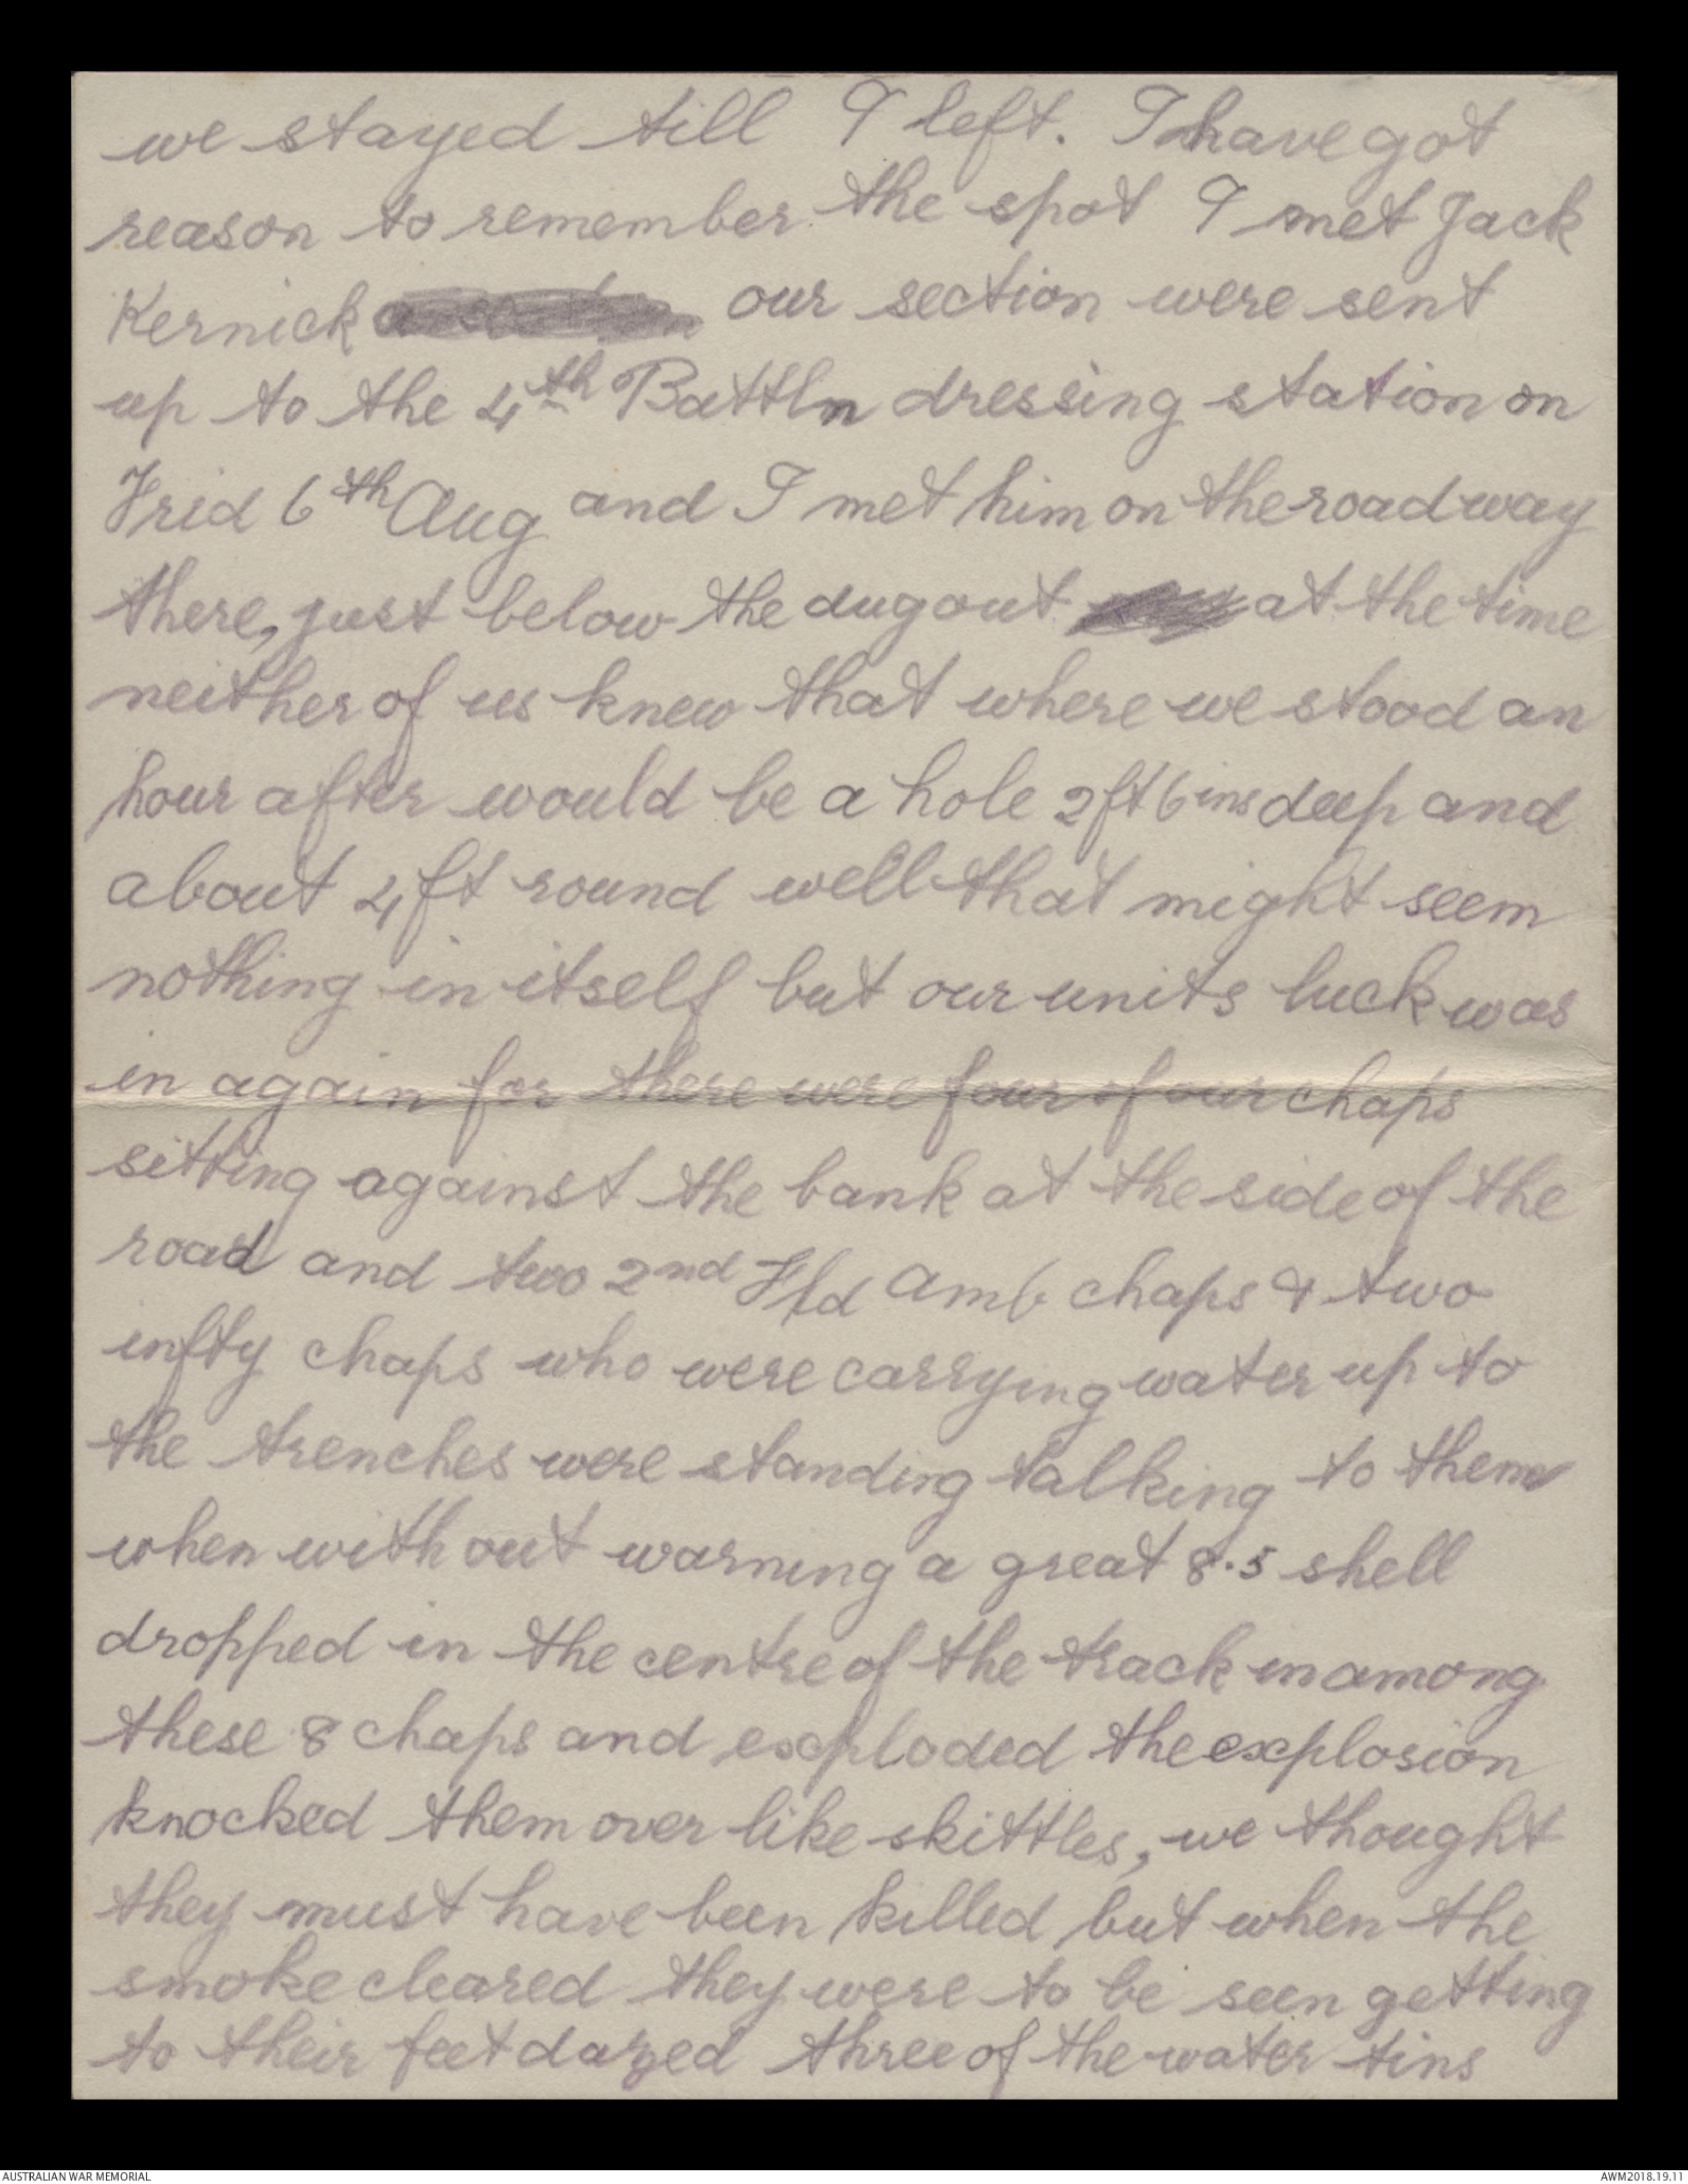 we stayed till I left. I have got
reason to remember the spot I met Jack
Kernick our section were sent
up to the 4th Battln dressing station on
Frid 6th Aug and I met him on the roadway
there, just below the dugout at the time
neither of us knew that where we stood an
hour after would be a hole 2ft 6ins deep and
about 4ft round well that might seem
nothing in itself but our units luck was
in again for there were four of our chaps
sitting against the bank at the side of the
road and two 2nd Fld Amb chaps & two
infty chaps who were carrying water up to
the trenches were standing talking to them
when without warning a great 8.5 shell
dropped in the centre of the track in among
these 8 chaps and exploded the explosion
knocked them over like skittles, we thought
they must have been killed but when the
smoke cleared they were to be seen getting
to their feet dazed three of the water tins
AUSTRALIAN WAR MEMORIAL
AWM2018.19.11